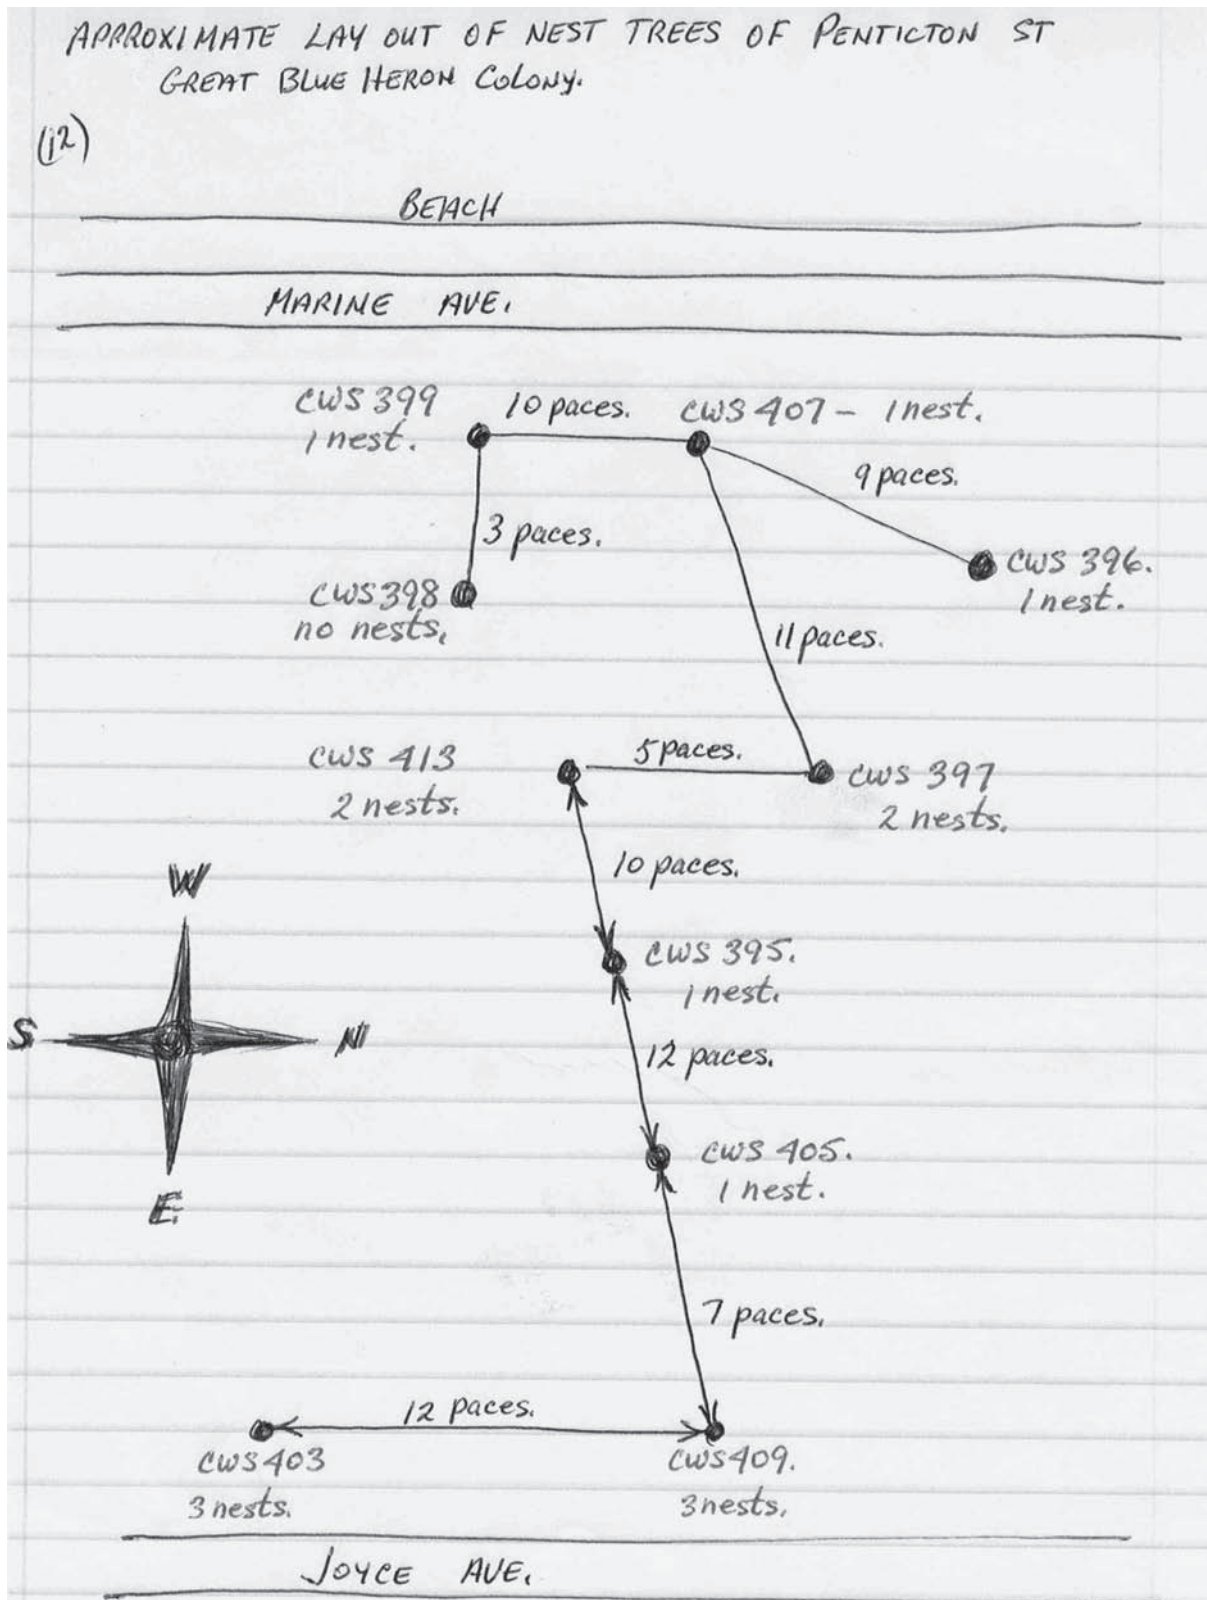 APPROXIMATE LAY OUT OF NEST TREES OF PENTICTON ST
GREAT BLUE HERON COLONY.
(12)
BEACH
MARINE AVE.
CWS 399
1 nest.
10 paces.
CWS 407 - 1 nest.
9 paces.
3 paces.
CWS 396.
1 nest.
CWS 398
no nests.
11 paces.
CWS 413
2 nests.
5 paces.
CWS 397
2 nests.
10 paces.
W
CWS 395.
1 nest.
S
N
12 paces.
CWS 405.
1 nest.
E
7 paces.
12 paces.
CWS 403
3 nests.
CWS 409.
3 nests.
JOYCE AVE.